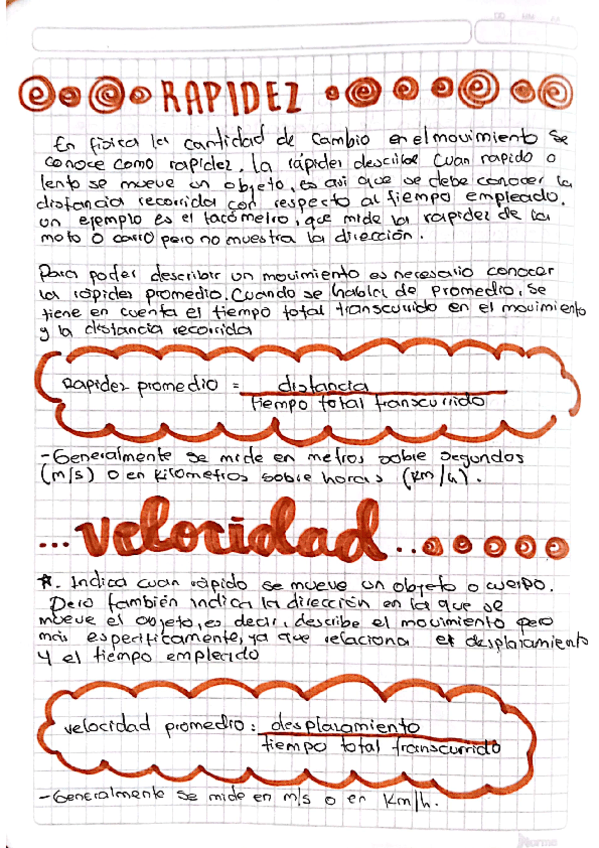 RAPIDEZ
En física la cantidad de cambio en el movimiento se
conoce como rapidez. La rápidez describe cuan rapido o
lento se mueve un objeto, es asi que se debe conocer la
distancia recorrida con respecto al tiempo empleado.
un ejemplo es el tacómetro, que mide la rapidez de la
moto o carro pero no muestra la dirección.
Para poder describir un movimiento es necesario conocer
la rápidez promedio. Cuando se habla de promedio, se
tiene en cuenta el tiempo total transcurrido en el movimiento
y la distancia recorrida
Rapidez promedio = distancia
tiempo total transcurrido
- Generalmente se mide en metros sobre segundos
(m/s) o en Kilometros sobre horas (km/h).
... velocidad ..
*. Indica cuan rápido se mueve un objeto o cuerpo.
Pero también indica la dirección en la que se
mueve el objeto, es decir, describe el movimiento pero
más especificamente, ya que relaciona el desplazamiento
y el tiempo empleado
velocidad promedio: desplazamiento
tiempo total transcurrido
- Generalmente se mide en m/s o en Km/h.
Norma